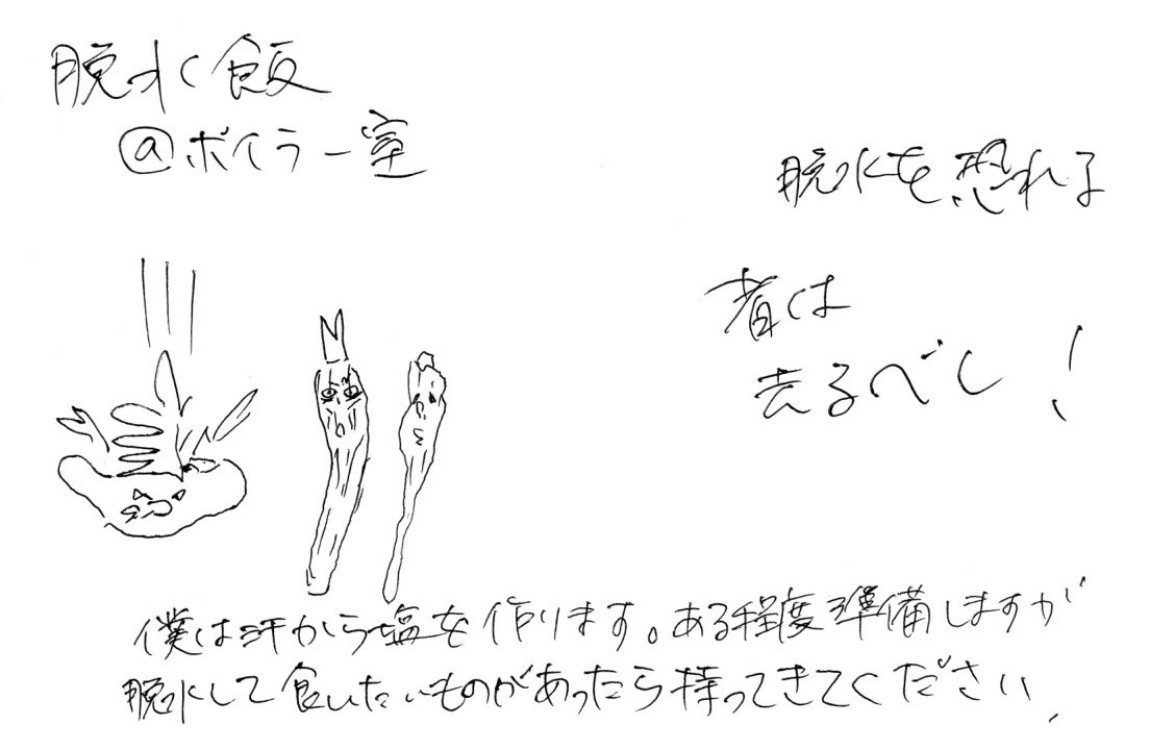 脱水飯
@ボイラー室
脱水を恐れる
者は
去るべし!
僕は汗から塩を作ります。ある程度準備しますが
脱水して食いたいものがあったら持ってきてください